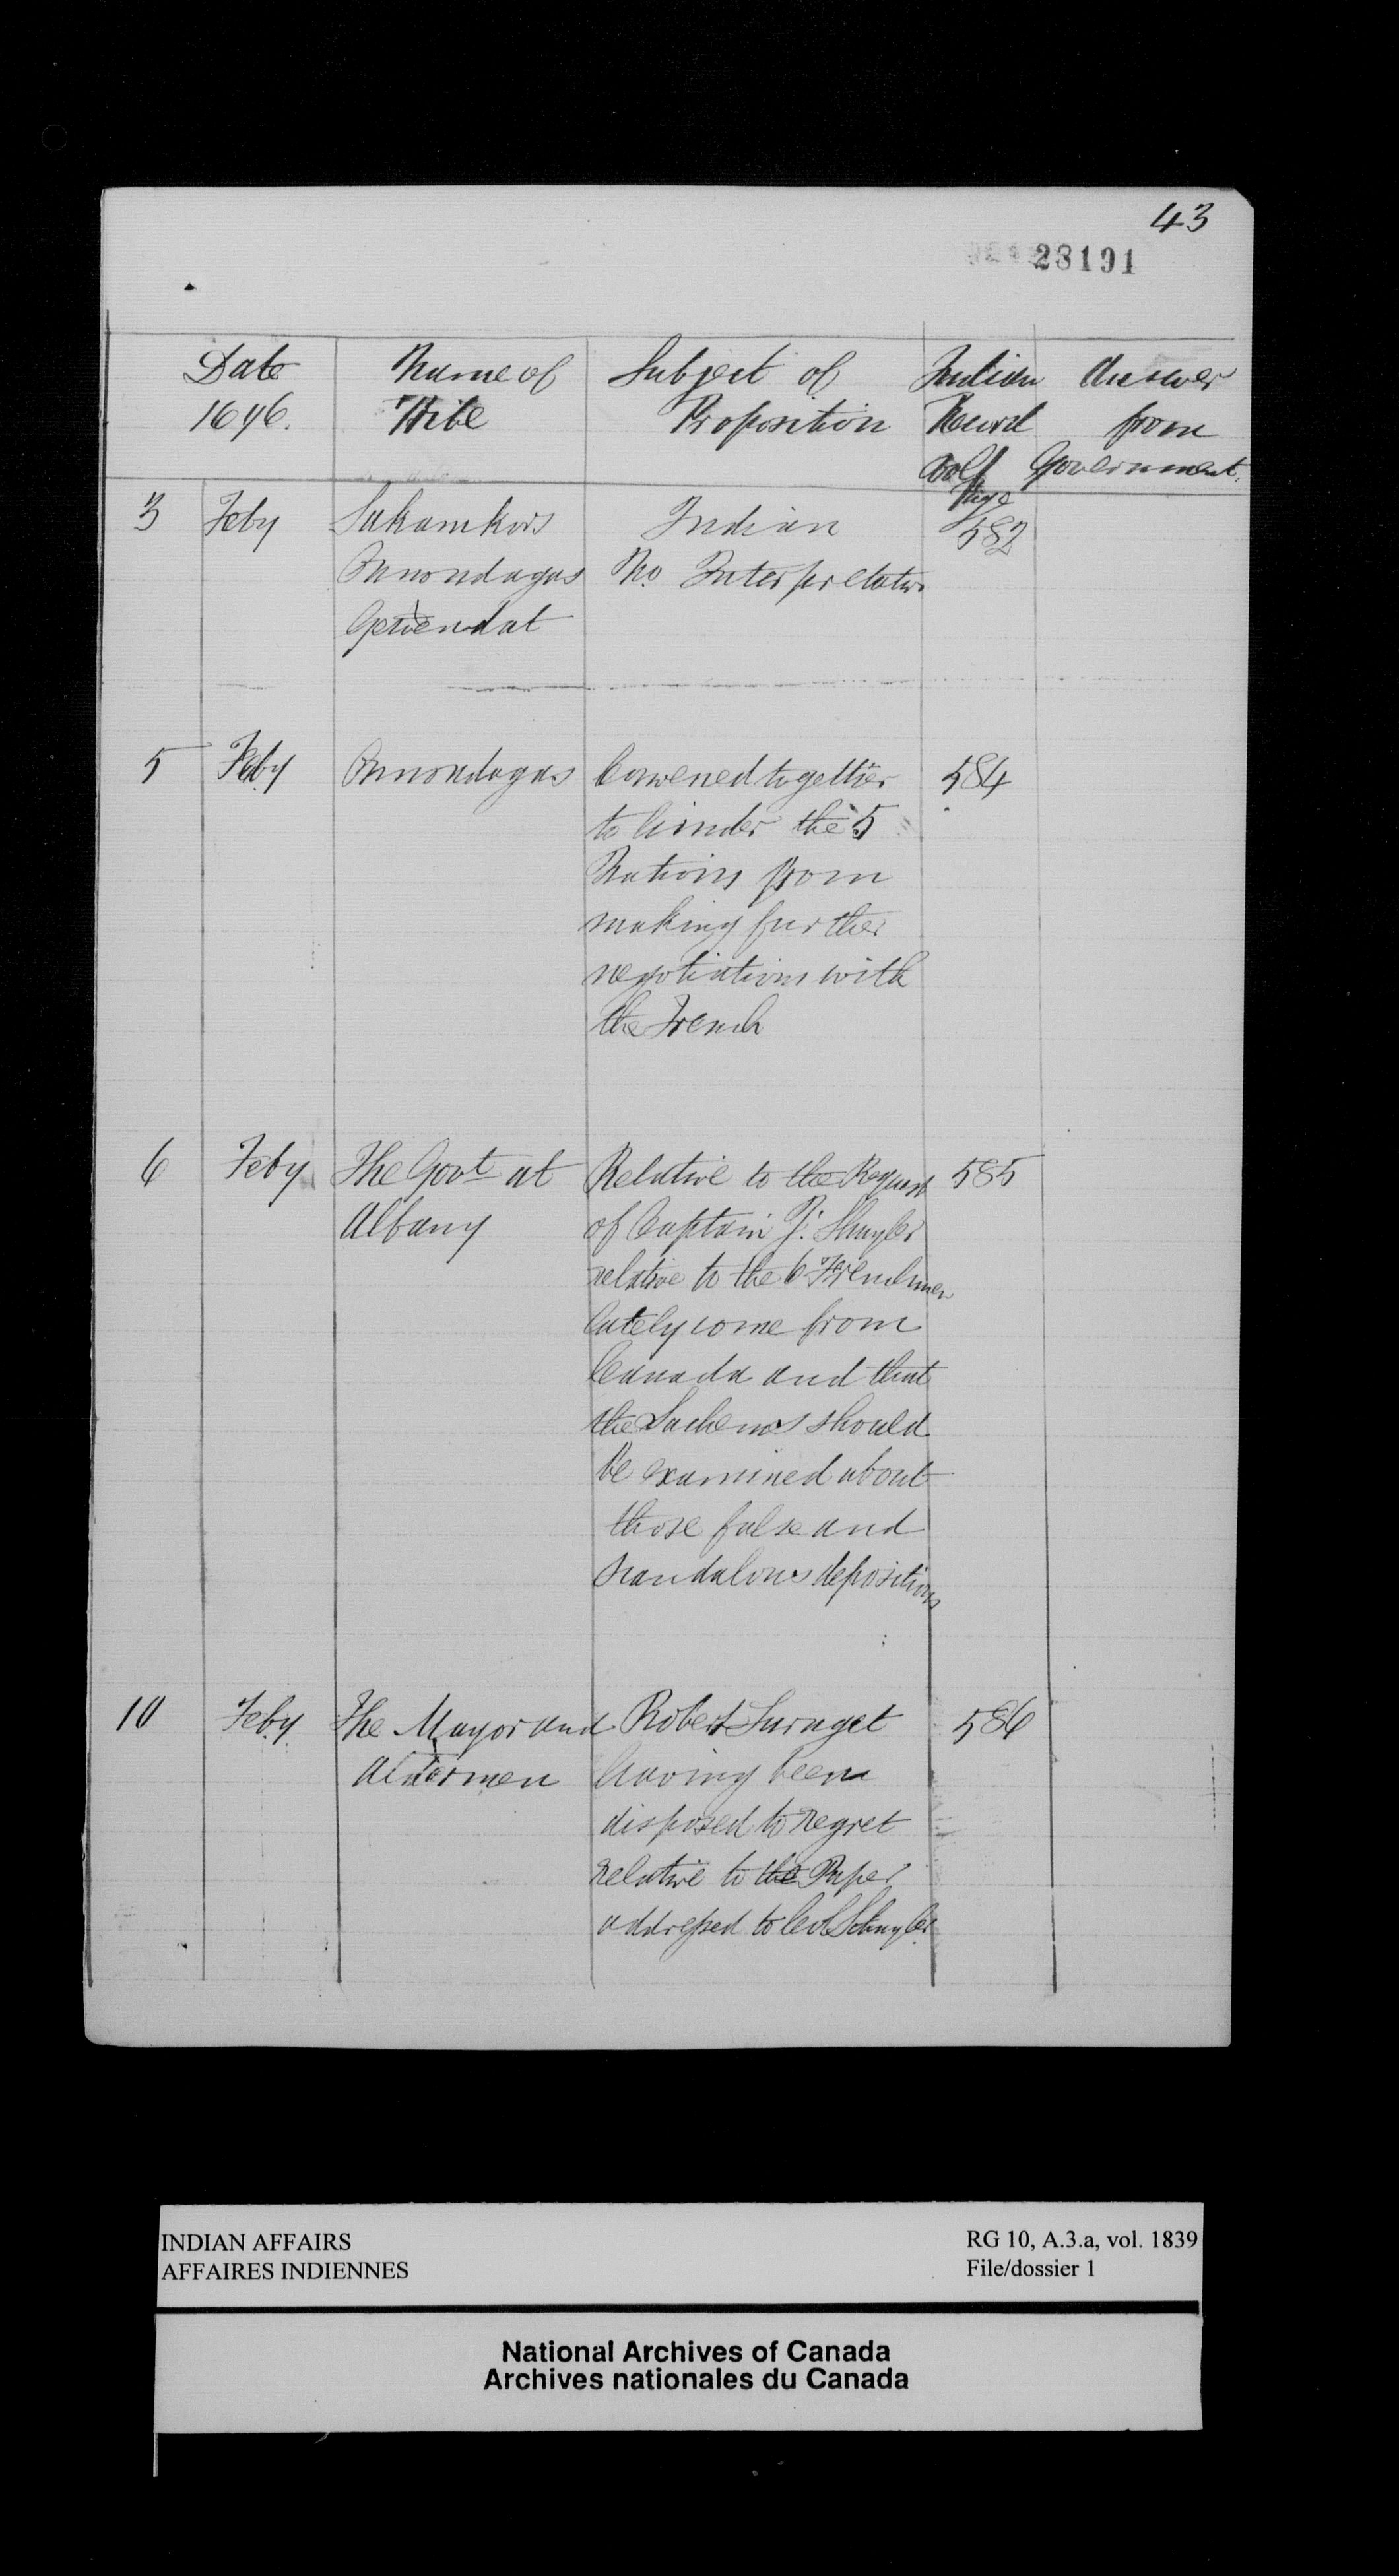 43
28191
Date Name of Subject of Indian Answer
1696. Tribe Proposition Record from
Vol 1 Government.
Page
3 Feby Sakamkors Indian 582
Onnondagas No Interpretation
5 Feby Onnondagas Convened together 584
to hinder the 5
Nations from
making further
negotiations with
the French
6 Feby The Govt at Relative to the Request 585
Albany of Captain P. Shuyler
relative to the 6 Frenchmen
lately come from
Canada and that
the Sachems should
be examined about
those false and
scandalous depositions
10 Feby The Mayor and Robert 586
Aldermen having been
disposed to regret
relative to the Paper
addressed to Col Schuyler
INDIAN AFFAIRS RG 10, A.3.a, vol. 1839
AFFAIRES INDIENNES File/dossier 1
National Archives of Canada
Archives nationales du Canada